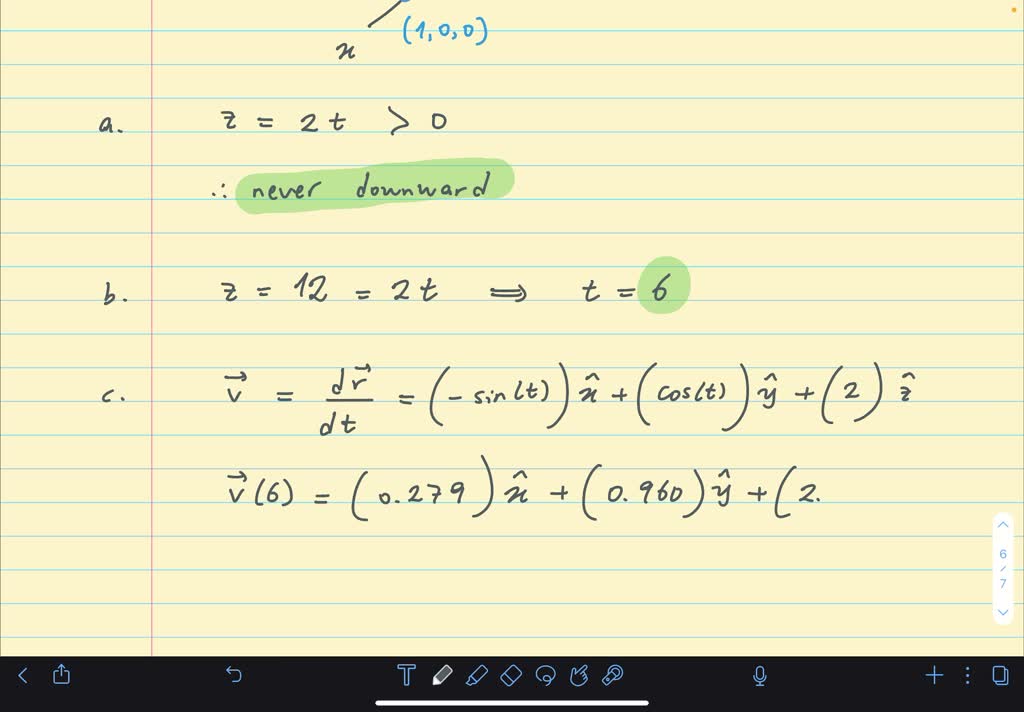 (1,0,0)
x
a. z = 2t > 0
∴ never downward
b. z = 12 = 2t ⟹ t = 6
c. v⃗ = dr⃗/dt = (-sin(t)) x̂ + (cos(t)) ŷ + (2) ẑ
v⃗(6) = (0.279) x̂ + (0.960) ŷ + (2.
6
/
7
T